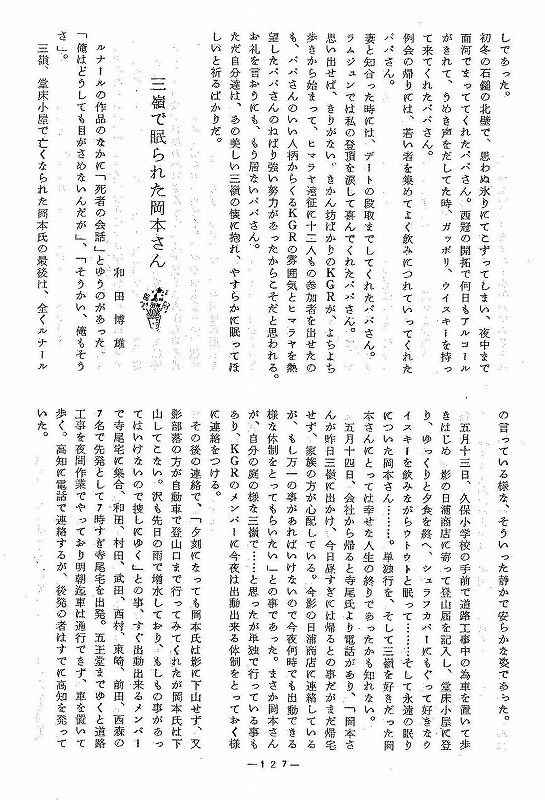 しであった。
初冬の石鎚の北壁で、思わぬ氷りにてこずってしまい、夜中まで
面河でまっててくれたパパさん。西冠の開拓で何日もアルコール
がきれて、うめき声をだしてた時、ガッポリ、ウイスキーを持っ
て来てくれたパパさん。
例会の帰りには、若い者を集めてよく飲みにつれていってくれた
パパさん。
妻と知合った時には、デートの段取までしてくれたパパさん。
ラムジュンでは私の登頂を涙して喜んでくれたパパさん。
思い出せば、きりがない。きかん坊ばかりのKGRが、よちよち
歩きから始まって、ヒマラヤ遠征に十二人もの参加者を出せたの
も、パパさんのいい人柄からくるKGRの雰囲気とヒマラヤを熱
望したパパさんのねばり強い努力があったからこそだと思われる。
お礼を言おうにも、もう居ないパパさん。
ただ自分達は、あの美しい三嶺の懐に抱れ、やすらかに眠ってほ
しいと祈るばかりだ。
三嶺で眠られた岡本さん
和田博雄
ルナールの作品のなかに「死者の会話」とゆうのがあった。
「俺はどうしても目がさめないんだが」、「そうかい、俺もそう
さ」。
三嶺、堂床小屋で亡くなられた岡本氏の最後は、全くルナール
の言っている様な、そういった静かで安らかな姿であった。
五月十三日、久保小学校の手前で道路工事中の為車を置いて歩
きはじめ、影の日浦商店に寄って登山届を記入し、堂床小屋に登
り、ゆっくりと夕食を終へ、シュラフカバーにもぐって好きなウ
イスキーを飲みながらウトウトと眠って………そして永遠の眠り
についた岡本さん………。単独行を、そして三嶺を好きだった岡
本さんにとっては幸せな人生の終りであったかも知れない。
五月十四日、会社から帰ると寺尾氏より電話があり、「岡本さ
んが昨日三嶺に出かけ、今日昼すぎには帰るとの事だがまだ帰宅
せず、家族の方が心配している。今影の日浦商店に連絡している
が、もし万一の事があればいけないので今夜何時でも出動できる
様な体制をとってもらいたい」との事であった。まさか岡本さん
が、自分の庭の様な三嶺で……と思ったが単独で行っている事も
あり、KGRのメンバーに今夜は出動出来る体制をとっておく様
に連絡をつける。
その後の連絡で、「夕刻になっても岡本氏は影に下山せず、又
影部落の方が自動車で登山口まで行ってみてくれたが岡本氏は下
山してこない。沢も先日の雨で増水しており、もしもの事があっ
てはいけないので捜しにゆく」との事、すぐ出動出来るメンバー
で寺尾宅に集合、和田、村田、武田、西村、東崎、前田、西森の
7名で先発として7時すぎ寺尾宅を出発。五王堂までゆくと道路
工事を夜間作業でやっており明朝迄車は通行できず、車を置いて
歩く。高知に電話で連絡するが、後発の者はすでに高知を発って
いた。
—127—